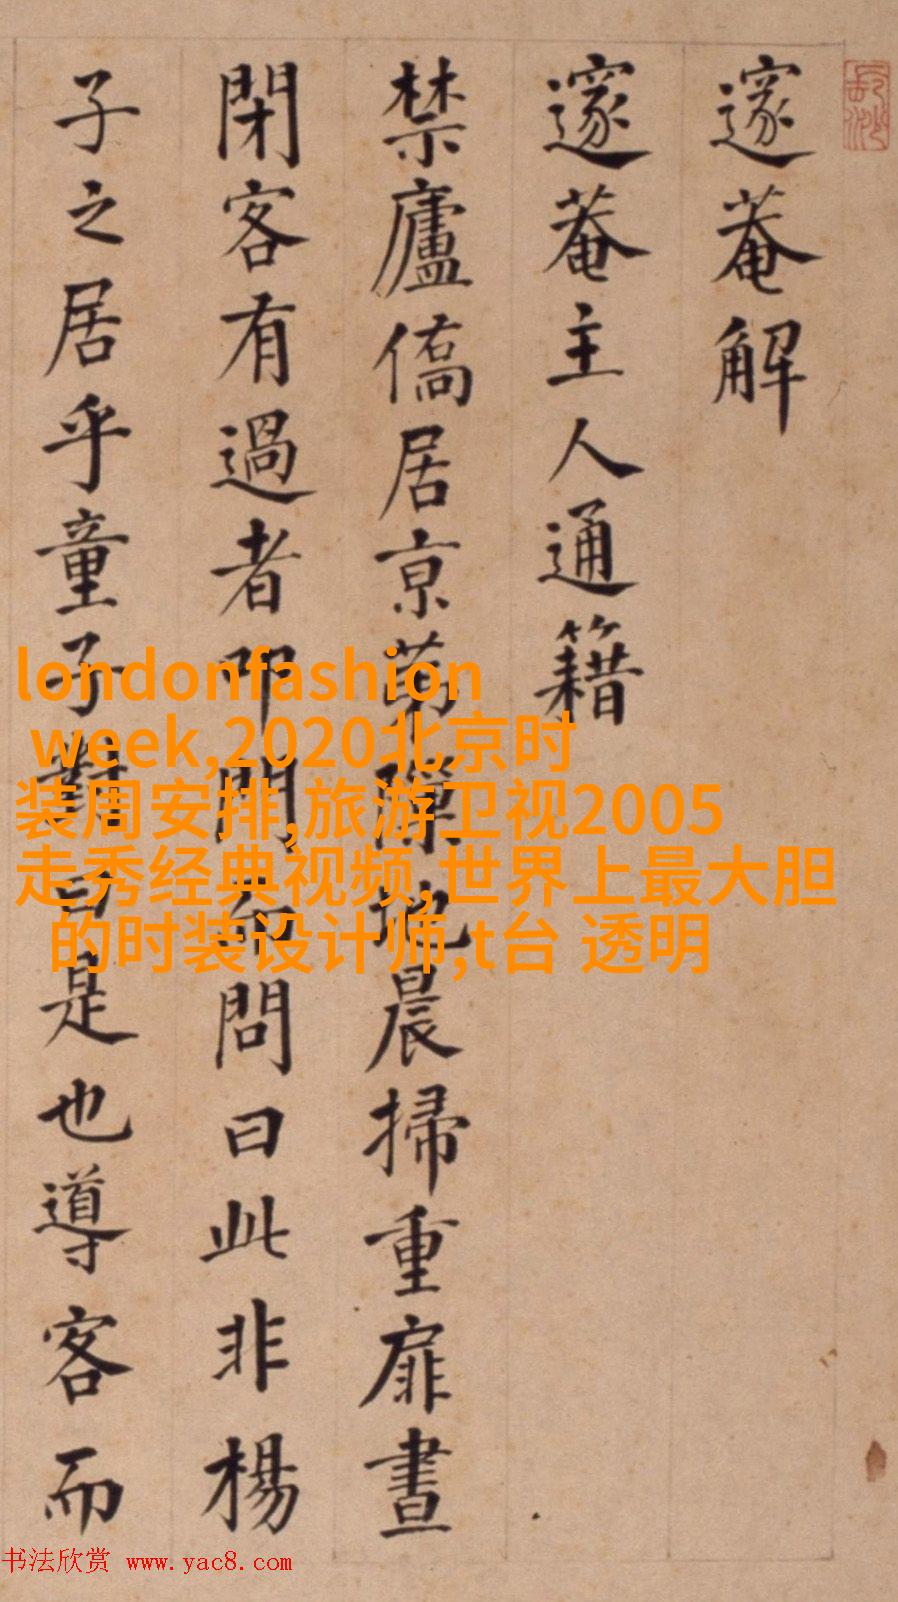 邃菴解
邃菴主人通籍
禁廬僑居京第隙地晨掃重扉晝
閉客有過者叩門而問曰此非楊
子之居乎童子對曰是也導客而
londonfashion
week,2020北京时
装周安排,旅游卫视2005
走秀经典视频,世界上最大胆
的时装设计师,t台 透明
书法欣赏 www.yac8.com